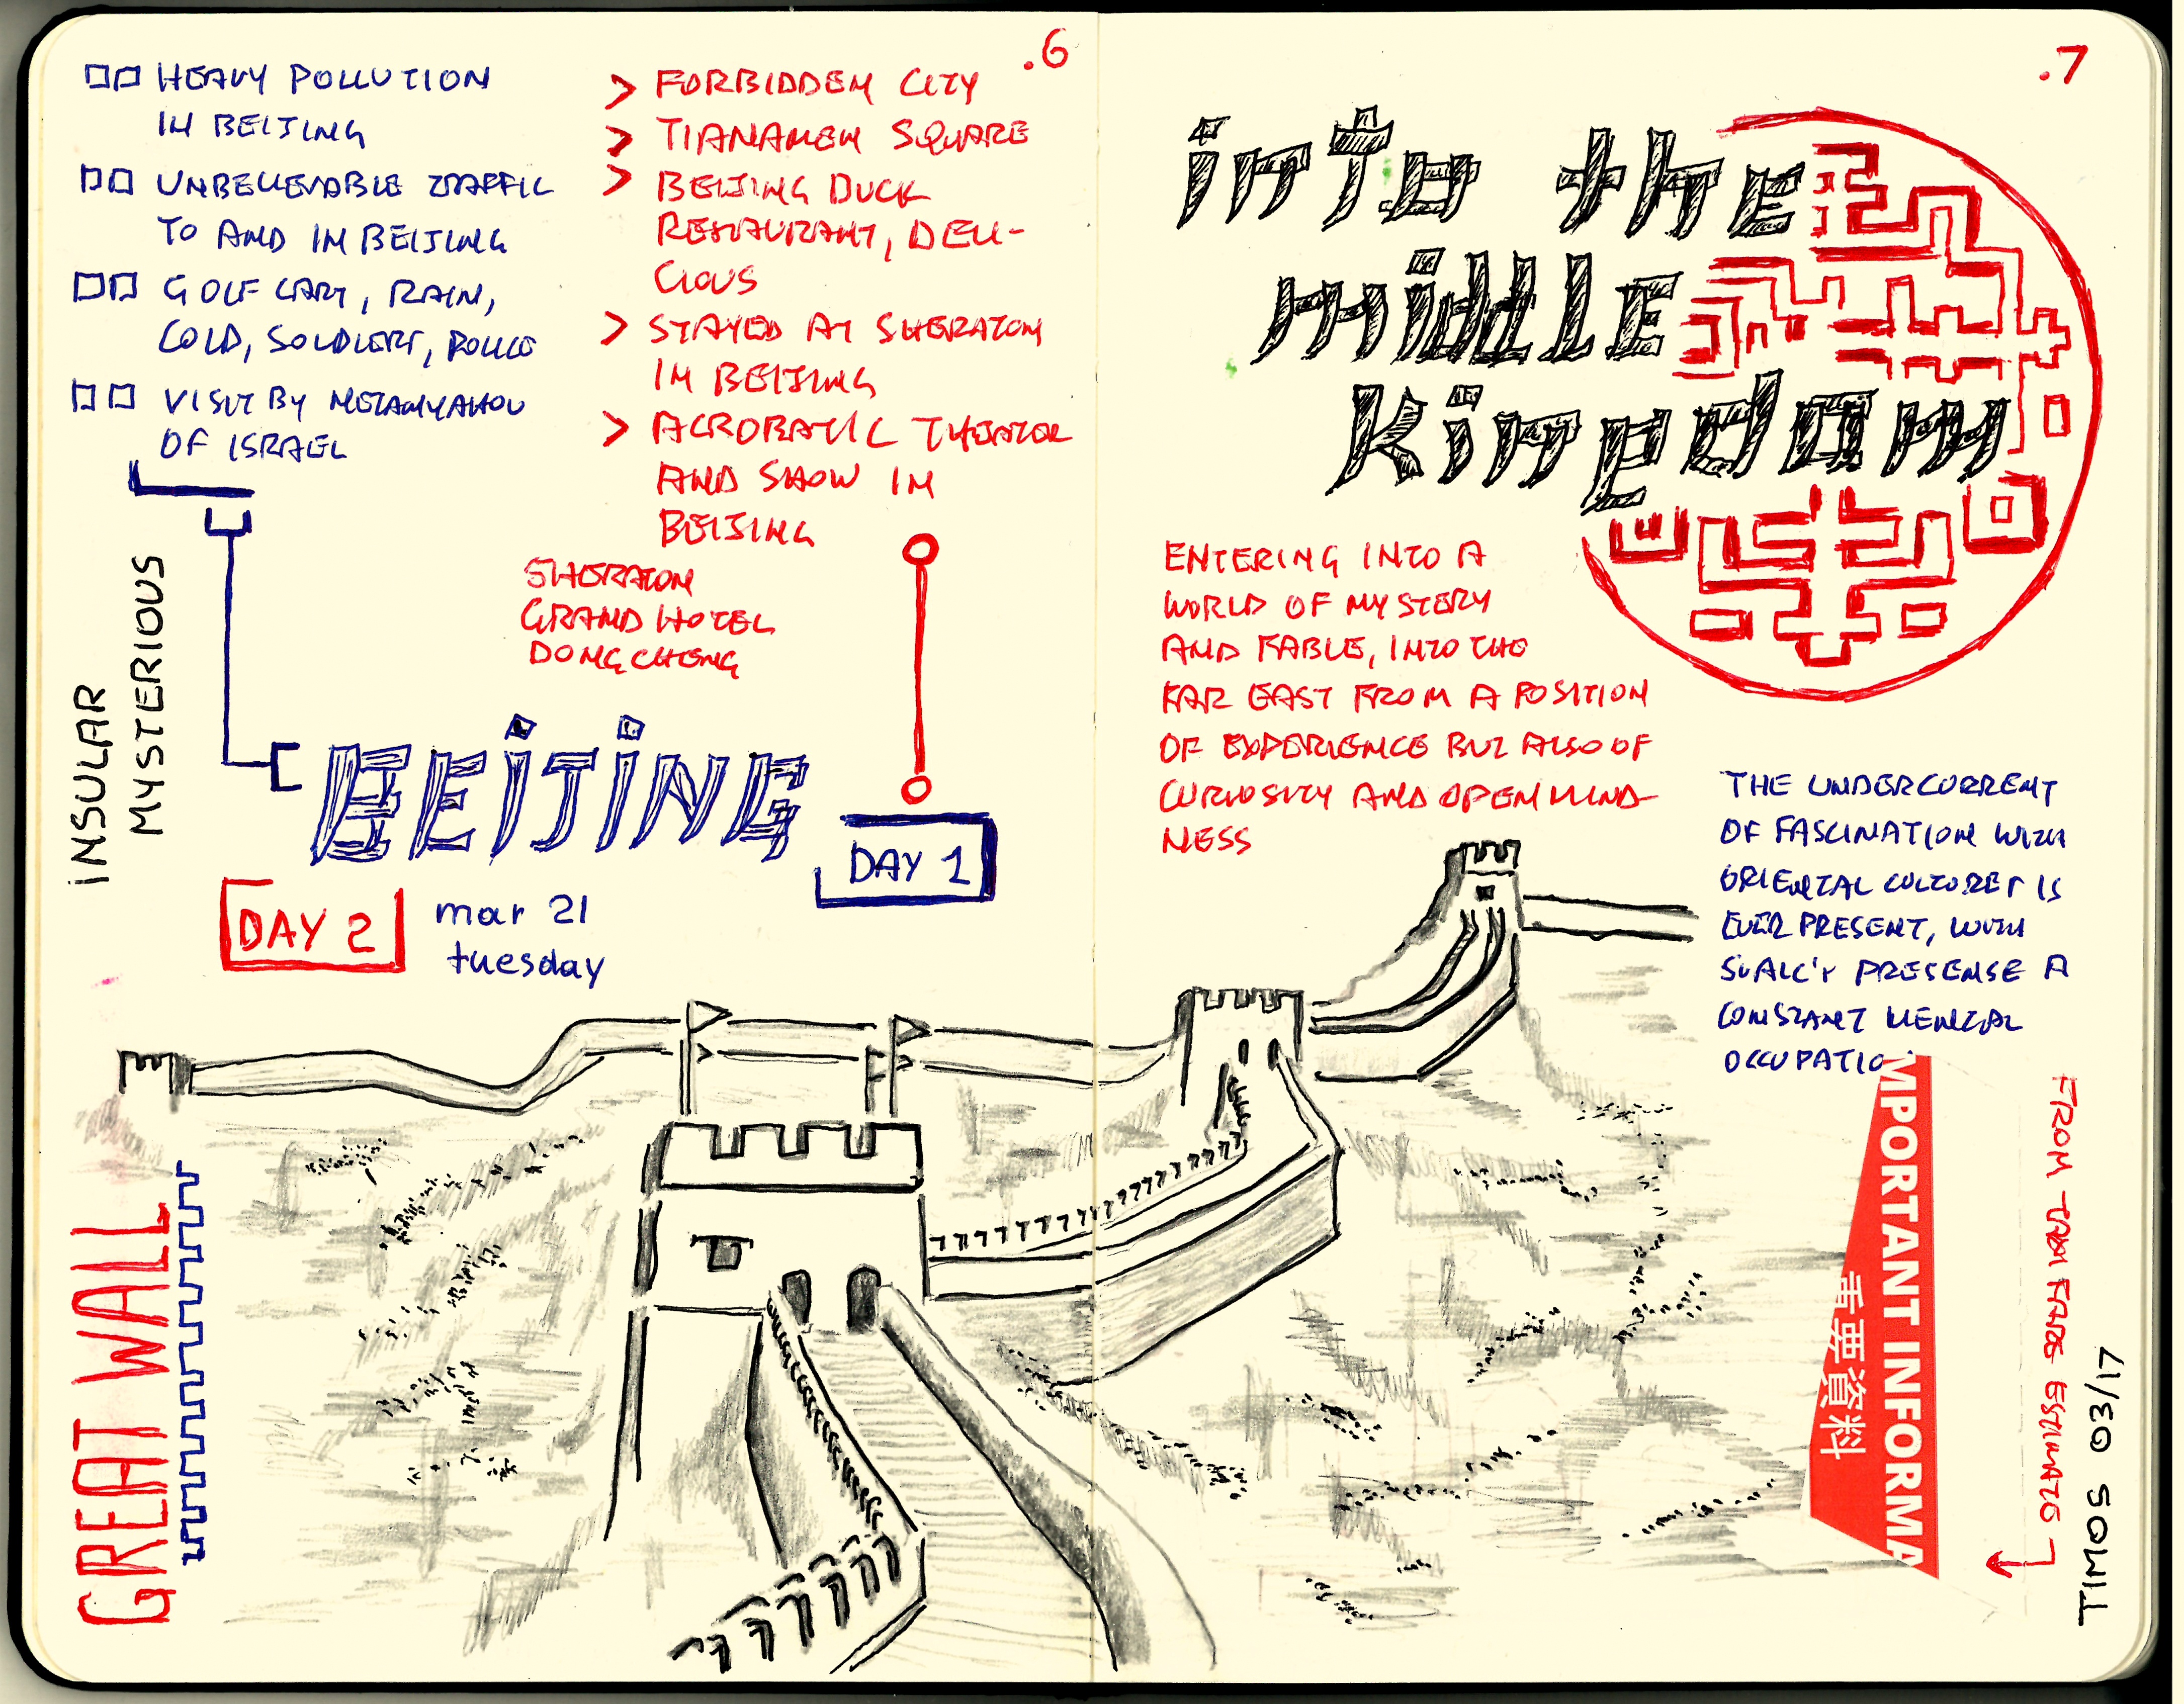 .6
HEAVY POLLUTION
IN BEIJING
UNBELIEVABLE TRAFFIC
TO AND IN BEIJING
GOLF CART, RAIN,
COLD, SOLDIERS, POLICE
VISIT BY NETANYAHOU
OF ISRAEL
> FORBIDDEN CITY
> TIANAMEN SQUARE
> BEIJING DUCK
RESTAURANT, DELI-
CIOUS
> STAYED AT SHERATON
IN BEIJING
> ACROBATIC THEATER
AND SHOW IN
BEIJING
SHERATON
GRAND HOTEL
DONGCHENG
INSULAR
MYSTERIOUS
BEIJING
DAY 1
DAY 2
mar 21
tuesday
GREAT WALL
.7
into the
middle
kingdom
ENTERING INTO A
WORLD OF MYSTERY
AND FABLE, INTO THE
FAR EAST FROM A POSITION
OF EXPERIENCE BUT ALSO OF
CURIOSITY AND OPENMIND-
NESS
THE UNDERCURRENT
OF FASCINATION WITH
ORIENTAL CULTURES IS
EVER PRESENT, WITH
PRESENSE A
CONSTANT MENTAL
OCCUPATIO
MPORTANT INFORMA
重要資料
FROM FARE ESTIMATE
TIMOS 03/17